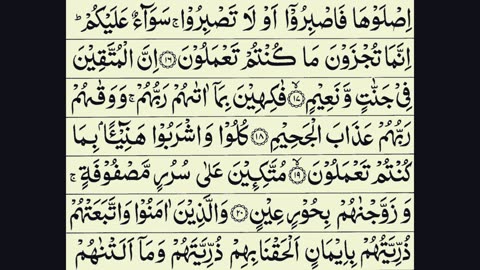 اِصۡلَوۡهَا فَاصۡبِرُوۡۤا اَوۡ لَا تَصۡبِرُوۡا ۚ سَوَآءٌ عَلَيۡكُمۡ ؕ
اِنَّمَا تُجۡزَوۡنَ مَا كُنۡتُمۡ تَعۡمَلُوۡنَ ﴿۱۶﴾ اِنَّ الۡمُتَّقِيۡنَ
فِىۡ جَنّٰتٍ وَّنَعِيۡمٍ ۙ﴿۱۷﴾ فٰكِهِيۡنَ بِمَاۤ اٰتٰٮهُمۡ رَبُّهُمۡ ۚ وَوَقٰٮهُمۡ
رَبُّهُمۡ عَذَابَ الۡجَحِيۡمِ ﴿۱۸﴾ كُلُوۡا وَاشۡرَبُوۡا هَـنِٓـيْـئًا ۢ بِمَا
كُنۡتُمۡ تَعۡمَلُوۡنَ ۙ﴿۱۹﴾ مُتَّكِـِٕيۡنَ عَلٰى سُرُرٍ مَّصۡفُوۡفَةٍ ۚ
وَ زَوَّجۡنٰهُمۡ بِحُوۡرٍ عِيۡنٍ ﴿۲۰﴾ وَالَّذِيۡنَ اٰمَنُوۡا وَاتَّبَعَتۡهُمۡ
ذُرِّيَّتُهُمۡ بِاِيۡمَانٍ اَلۡحَـقۡنَا بِهِمۡ ذُرِّيَّتَهُمۡ وَمَاۤ اَلَـتۡنٰهُمۡ